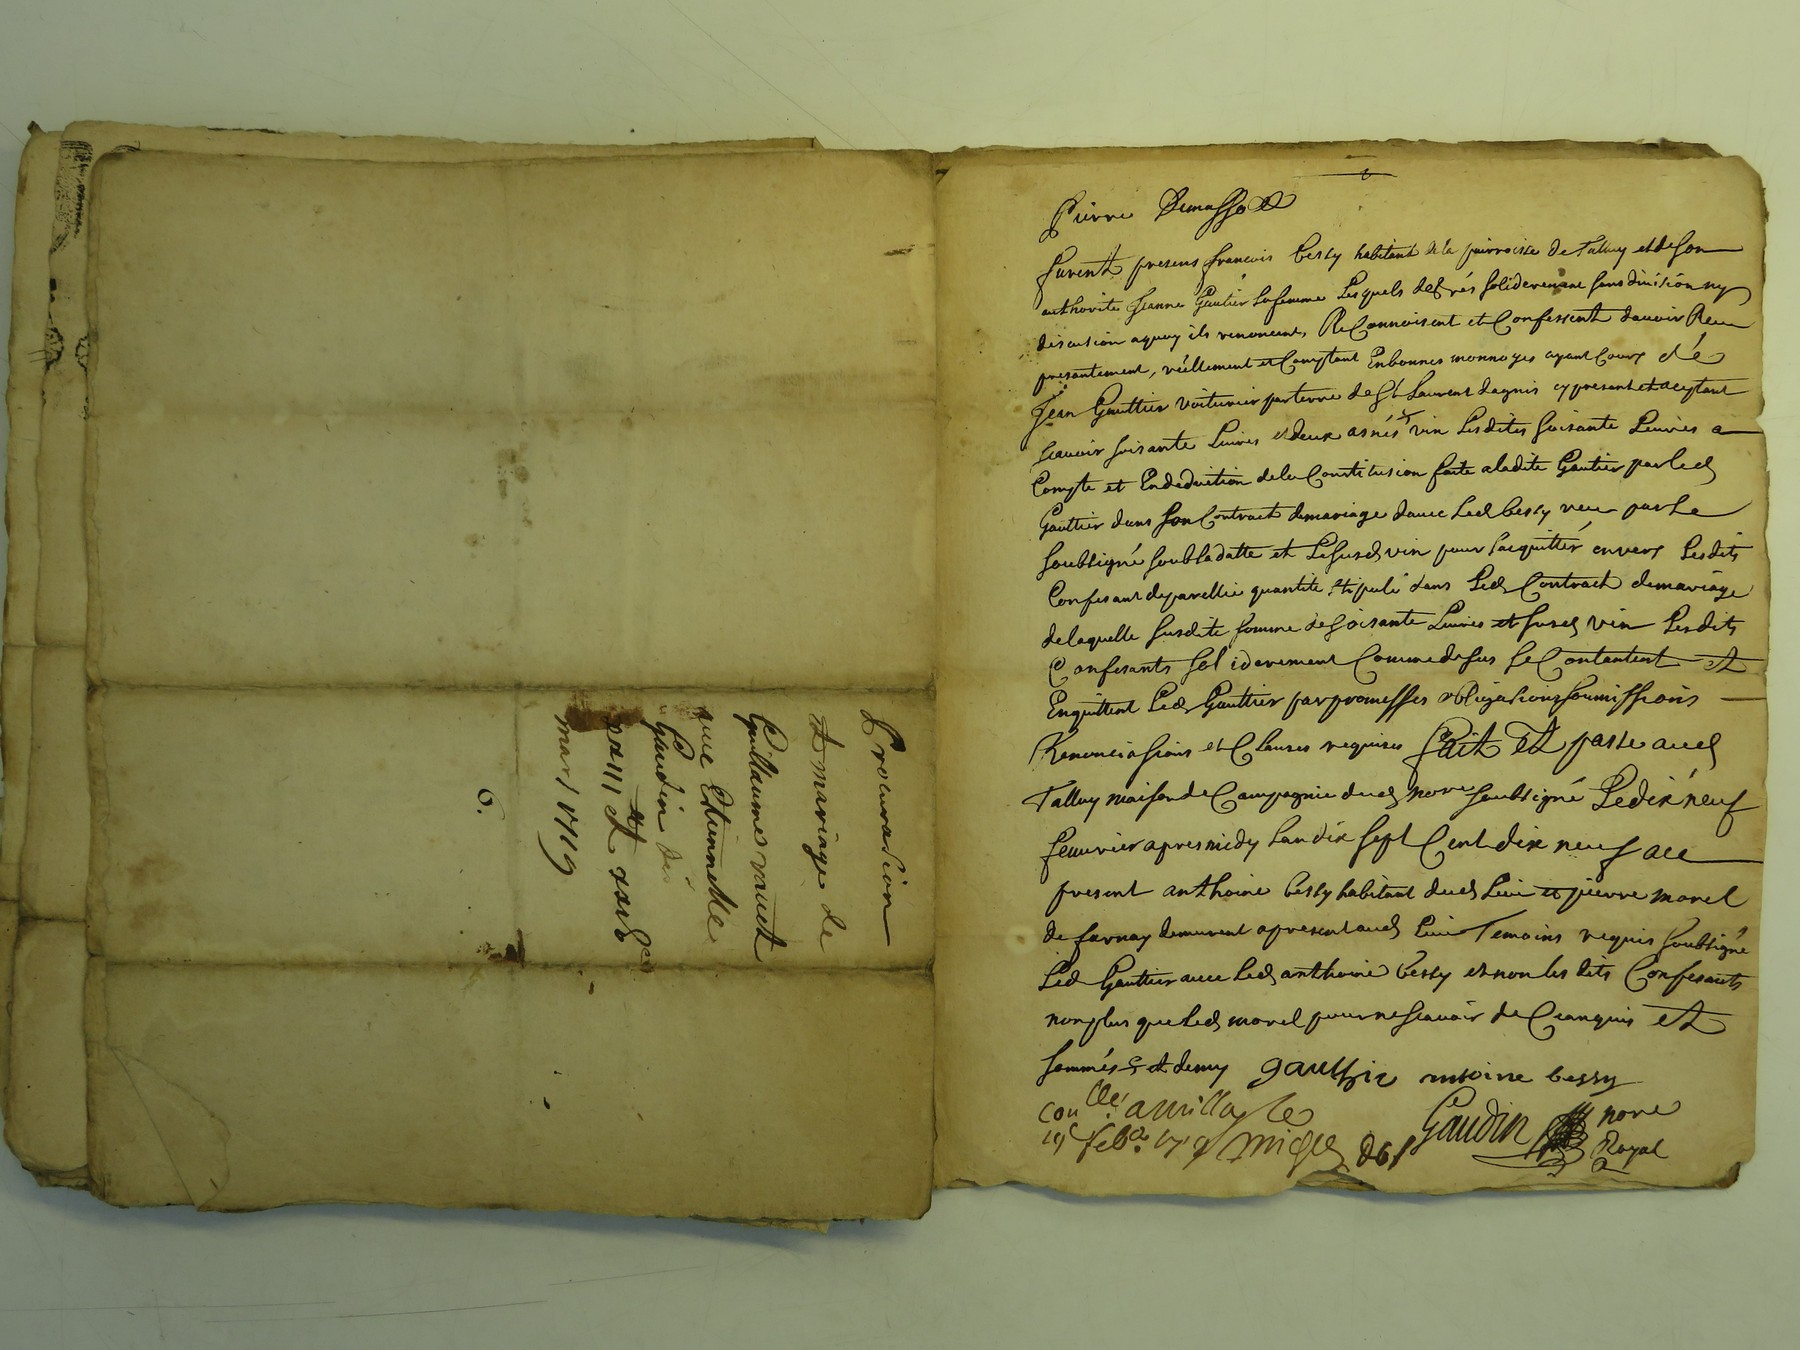 Procurasion
et mariage de
Guillaume vanet
avec Etiennette
Gaudin des
mars 1719
6.
furent presens francois bessy habitant de la parroisse de Talluy et de son
authorité Jeanne Gautier sa femme Lesquels de grés soliderement sans division ny
discution aquoy ils renoncent, ReConnoisent et Confessent davoir Receu
presantement, réellement et Comptant Enbonnes monnoyes ayant Cours dé
Jean Gauttier voiturier par terre de St Laurent dagnis cy present et aceptant
scavoir soisante Livres et deux asnés vin Lesdites soisante Livres a
Compte et Endeduction dela Constitusion faite aladite Gautier par led
Gauttier dans son Contract demariage avec Led bessy receu par Le
soubsigné soubsladatte et Lesusd vin pour sacquitter envers Lesdits
Confesant depareillie quantité stipulé dans Led Contract demariage
delaquelle susdite somme de soisante Livres et susd vin Lesdits
Confesants soliderement Comme desus se Contentent et
Enquittent Led Gauttier par promesses obligasions soumissions
Renonciasions et Clauses requises fait et passé aud
Talluy maison de Campagnie dud nore soubsigné Ledix neuf
feuvrier apres midy Lan dix sept Cent dix neuf au
present anthoine bessy habitant dud Lieu et pierre morel
de farnay demurent apresent aud Lieu Temoins requis soubsigné
Led Gauttier avec Led anthoine bessy et non les dits Confesants
non plus que Led morel pour ne scavoir de Cenquis et
sommés et demy gauthie antoine bessy
con lle a millery le
19e feb. 1719
Gaudin nore
Royal